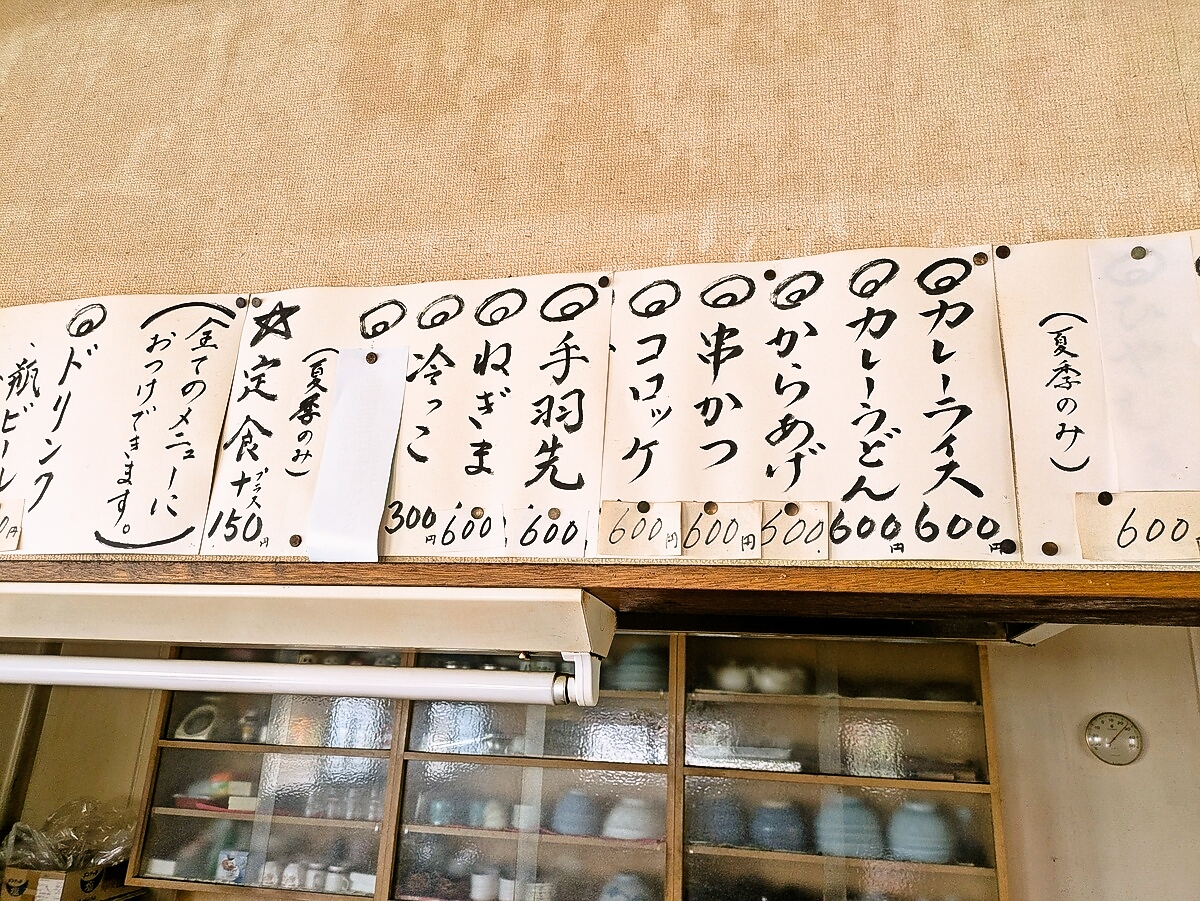 600円
(夏季のみ)
◎カレーライス 600円
◎カレーうどん 600円
◎からあげ 500
◎串かつ 600円
◎コロッケ 600円
◎手羽先 600
◎ねぎま 600
◎冷っこ 300円
◎
(夏季のみ)
☆定食+プラス150円
(全てのメニューに
おつけできます。)
◎ドリンク
瓶ビール